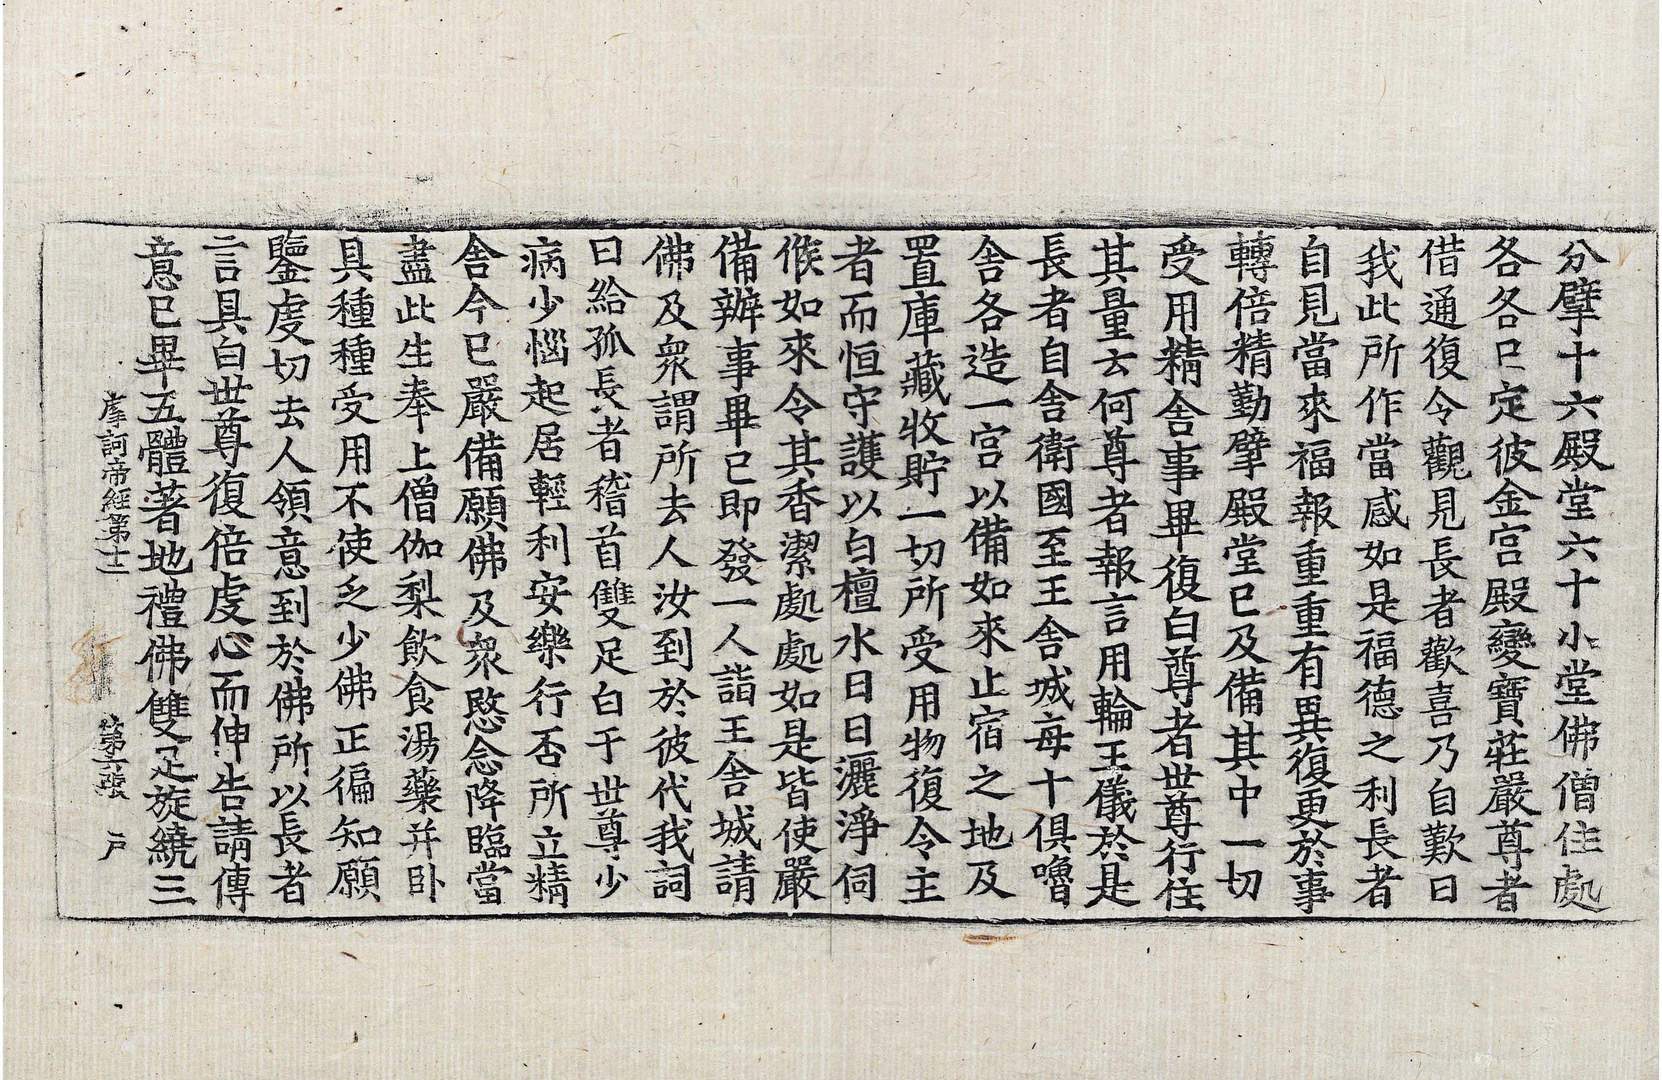 分擘十六殿堂六十小堂佛僧住處
各各已定彼金宫殿變寶莊嚴尊者
借通復令觀見長者歡喜乃自歎曰
我此所作當感如是福德之利長者
自見當來福報重重有異復更於事
轉倍精勤擘殿堂已及備其中一切
受用精舍事畢復白尊者世尊行住
其量云何尊者報言用輪王儀於是
長者自舍衛國至王舍城每十俱嚕
舍各造一宫以備如來止宿之地及
置庫藏收貯一切所受用物復令主
者而恒守護以白檀水日日灑淨伺
候如來令其香潔處處如是皆使嚴
備辦事畢已即發一人詣王舍城請
佛及衆謂所去人汝到於彼代我詞
曰給孤長者稽首雙足白于世尊少
病少惱起居輕利安樂行否所立精
舍今已嚴備願佛及衆愍念降臨當
盡此生奉上僧伽梨飲食湯藥并卧
具種種受用不使乏少佛正徧知願
鑒虔切去人領意到於佛所以長者
言具白世尊復倍虔心而伸告請傳
意已畢五體著地禮佛雙足旋繞三
摩訶帝經第十二 第六張 戶